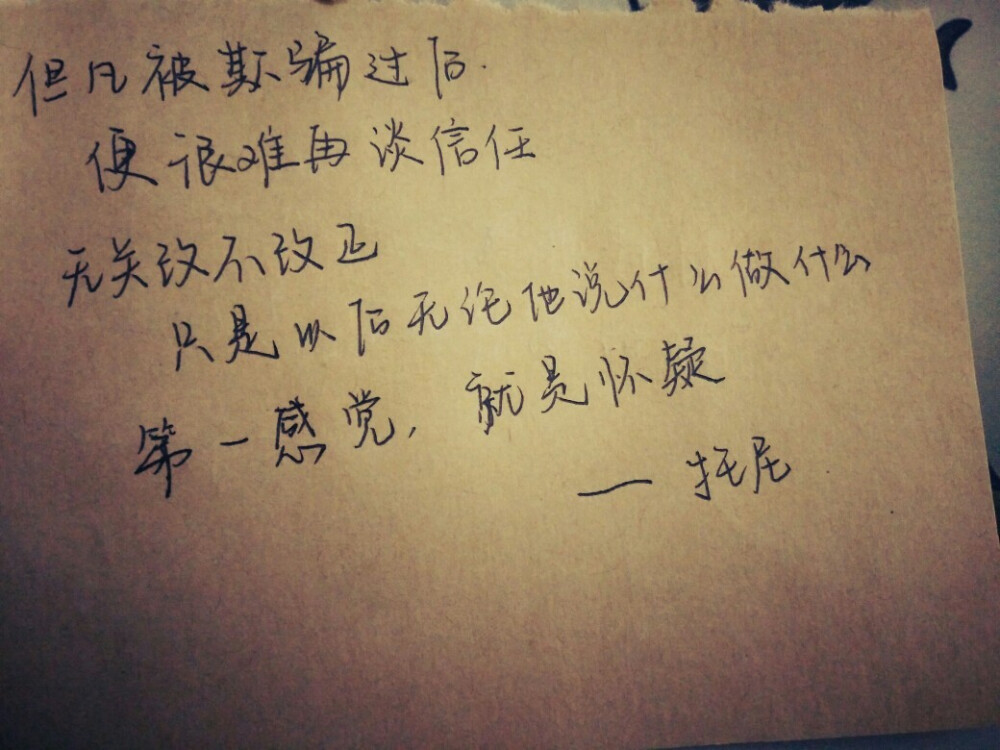 但凡被欺骗过后.
便很难再谈信任
无关改不改正
只是以后无论他说什么做什么
第一感觉,就是怀疑
——托尼